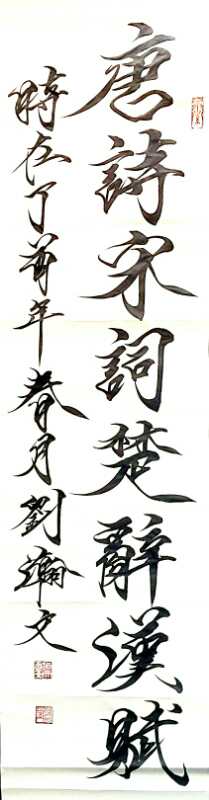 唐詩宋詞楚辭漢賦
時在丁酉年春月劉瀚文